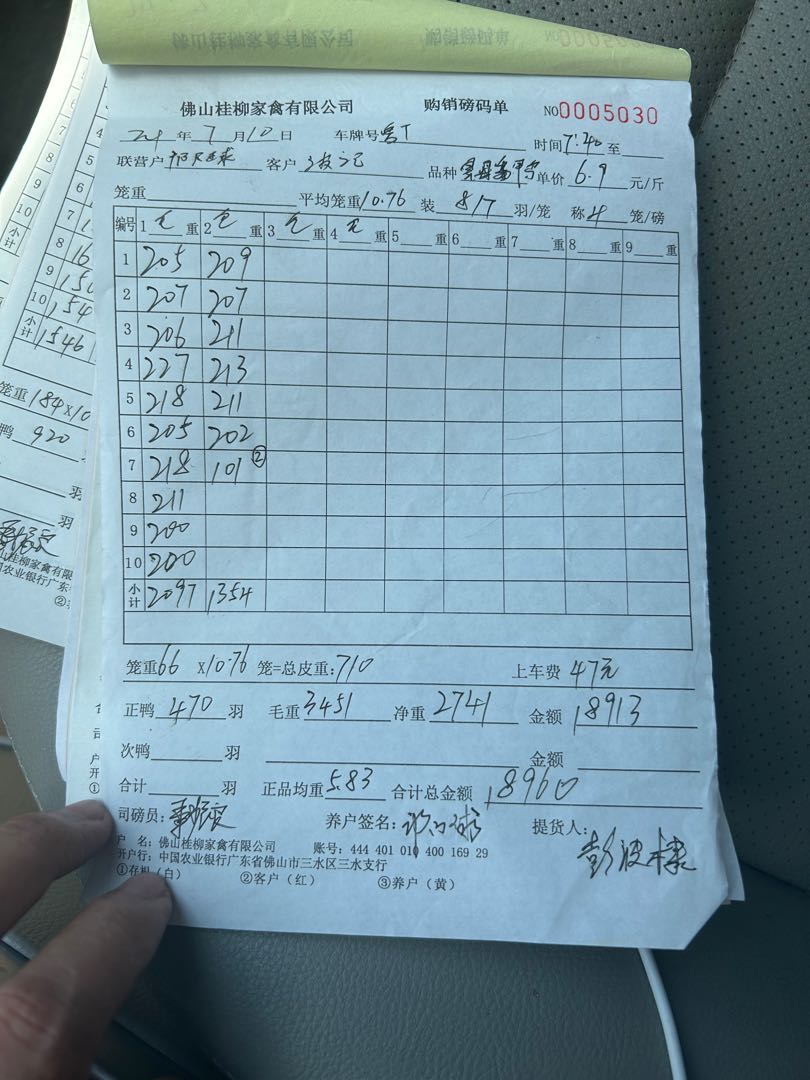 佛山桂柳家禽有限公司 购销磅码单 NO0005030
佛山桂柳家禽有限公司 购销磅码单 NO0005030
24年7月10日 车牌号粤T 时间7:40至
联营户 客户 品种 单价6.9元/斤
笼重 平均笼重10.76 装8/7羽/笼 称4笼/磅
编号 1毛重 2毛重 3毛重 4毛重 5重 6重 7重 8重 9重
1 205 209
2 207 207
3 206 211
4 227 213
5 218 211
6 205 202
7 218 101 ②
8 211
9 200
10 200
小计 2097 1354
笼重66 X10.76笼=总皮重:710 上车费47元
正鸭470羽 毛重3451 净重2741 金额18913
次鸭羽 金额
合计羽 正品均重5.83 合计总金额18960
司磅员: 养户签名: 提货人:彭波棣
户 名:佛山桂柳家禽有限公司 账号:444 401 010 400 169 29
开户行:中国农业银行广东省佛山市三水区三水支行
①存根(白) ②客户(红) ③养户(黄)
7
8
9
10
小计
8 16
9
10 154
小计 1546
笼重184X10
鸭 920
羽
羽
山桂柳家禽有限
国农业银行广东